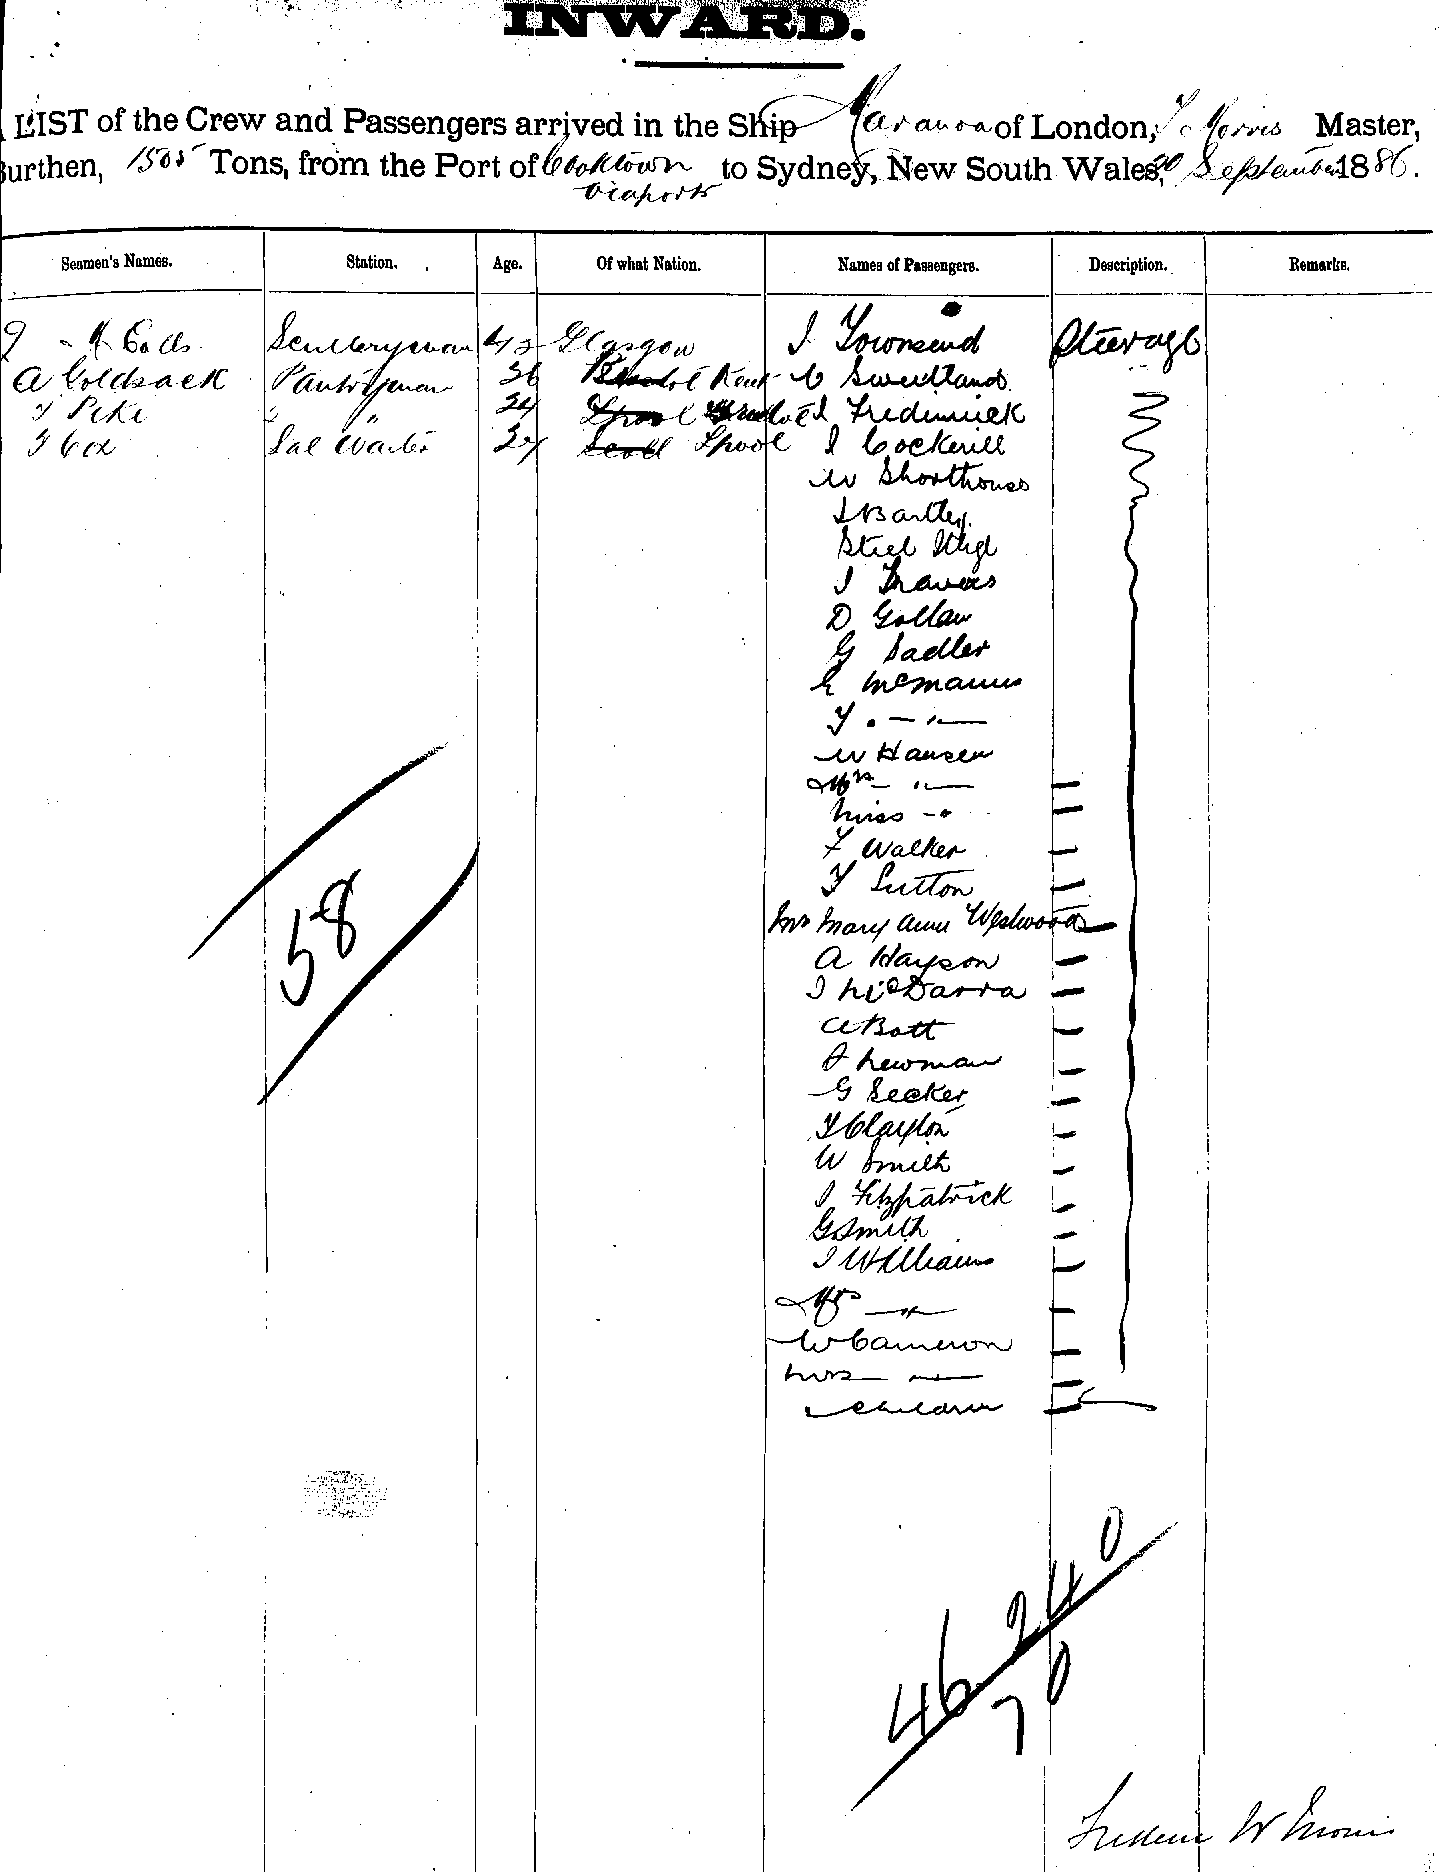 INWARD.
LIST of the Crew and Passengers arrived in the Ship Maranoa of London, Morris Master,
Burthen, 1505 Tons, from the Port of Cooktown to Sydney, New South Wales, 20 September 1886.
Viaports
Seamen's Names. Station. Age. Of what Nation. Names of Passengers. Description. Remarks.
Sculleryman 42 Glasgow J Townsend Steerage
A Goldsack Pantryman 36 Kent C Swedland
Pike " " 24 Frederick
Cox Sal Waiter 27 Lpool J Cockerill
W Shorthouse
J Bartley
Steel
J Travers
D Gollan
G Sadler
E McManus
W Hansen
Mrs — " —
Miss — "
F Walker
Sutton
Mrs Mary Ann Westwood
A Hayson
J McDarra
A Bott
J Newman
G Secker
Clayton
W Smith
J Fitzpatrick
G Smith
J Williams
Mrs — " —
W Cameron
Mrs — " —
children
58
240
46
70
Frederic W Morris